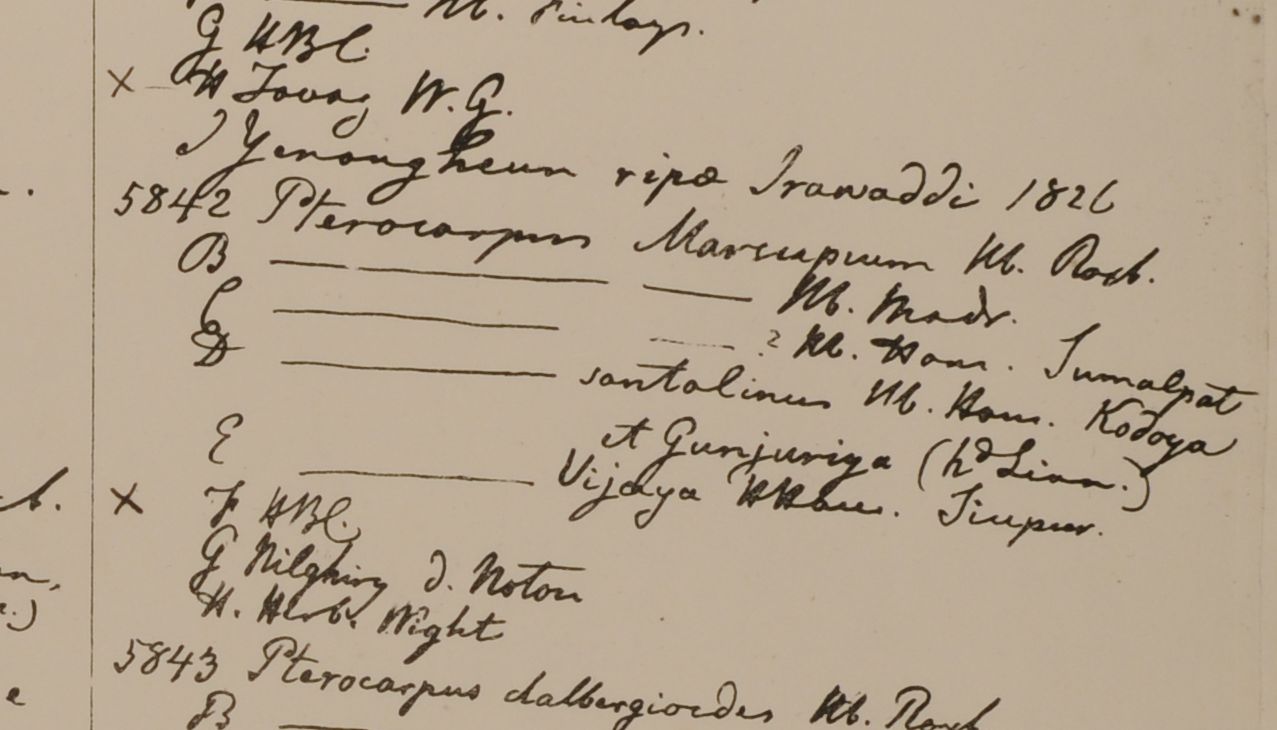 Hb. Finlays.
G HBC.
× H Tavoy W.G.
J Yenangheun ripæ Irawaddi 1826
5842 Pterocarpus Marsupium Hb. Roxb.
B Hb. Madr.
C ? Hb. Ham.
D santalinus Hb. Ham. Kodoya
et Gunjuriya (hd Linn.)
E Vijaya HHam.
× F HBC.
G Nilghiry d. Noton
H. Herb. Wight
5843 Pterocarpus dalbergioides Hb. Roxb
B